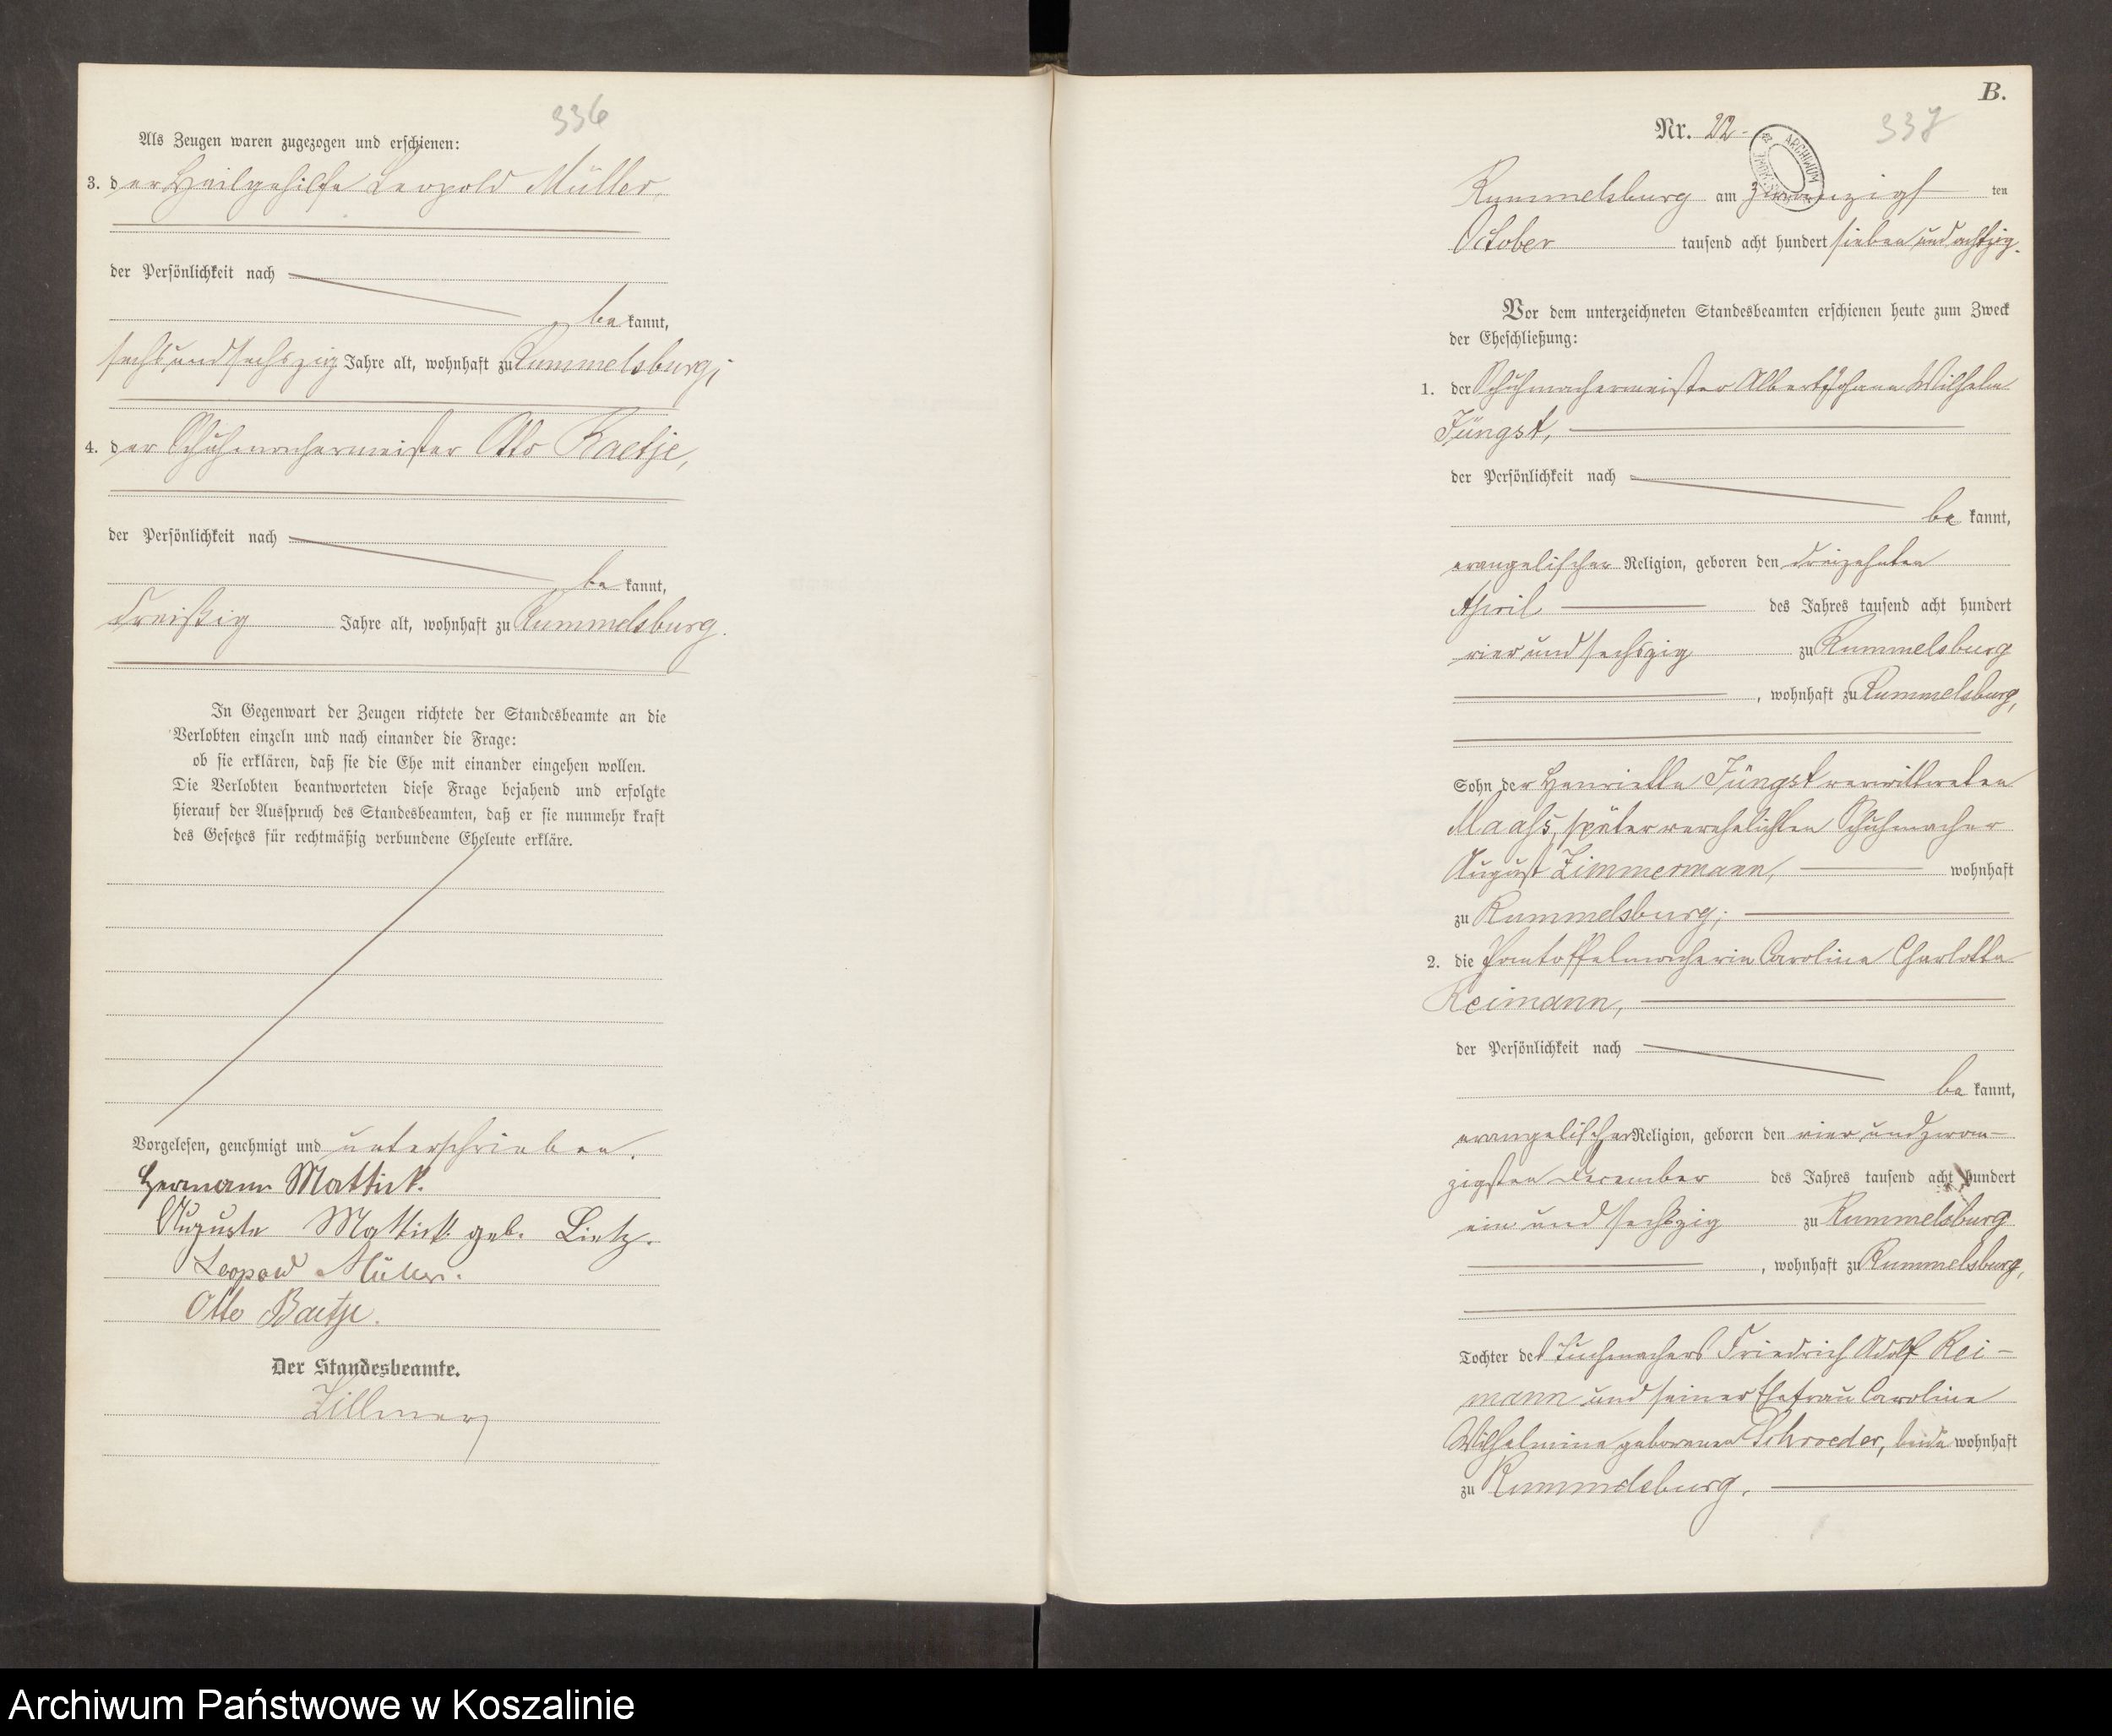 336
Als Zeugen waren zugezogen und erschienen:
3. der Heilgehilfe Leopold Müller,
der Persönlichkeit nach
bekannt,
sechsundsechszig Jahre alt, wohnhaft zu Rummelsburg;
4. der Schuhmachermeister Otto Baetje,
der Persönlichkeit nach
bekannt,
dreißig Jahre alt, wohnhaft zu Rummelsburg.
In Gegenwart der Zeugen richtete der Standesbeamte an die
Verlobten einzeln und nach einander die Frage:
ob sie erklären, daß sie die Ehe mit einander eingehen wollen.
Die Verlobten beantworteten diese Frage bejahend und erfolgte
hierauf der Ausspruch des Standesbeamten, daß er sie nunmehr kraft
des Gesetzes für rechtmäßig verbundene Eheleute erkläre.
Vorgelesen, genehmigt und unterschrieben.
Hermann Mattick.
Auguste Mattick geb. Lietz.
Leopold Müller.
Otto Baetje.
Der Standesbeamte.
Zillmer
B.
Nr. 22. 337
ARCHIWUM
Rummelsburg am zwanzigsten
October tausend acht hundert sieben und achtzig.
Vor dem unterzeichneten Standesbeamten erschienen heute zum Zweck
der Eheschließung:
1. der Schuhmachermeister Albert Johann Wilhelm
Jüngst,
der Persönlichkeit nach
bekannt,
evangelischer Religion, geboren den dreizehnten
April des Jahres tausend acht hundert
vier und sechszig zu Rummelsburg
, wohnhaft zu Rummelsburg,
Sohn der Henriette Jüngst verwittweten
Maass, später verehelichten Schuhmacher
August Zimmermann, wohnhaft
zu Rummelsburg;
2. die Pantoffelmacherin Caroline Charlotte
Reimann,
der Persönlichkeit nach
bekannt,
evangelischer Religion, geboren den vier und zwan-
zigsten December des Jahres tausend acht hundert
ein und sechszig zu Rummelsburg
, wohnhaft zu Rummelsburg,
Tochter des Tuchmachers Friedrich Adolf Rei-
mann und seiner Ehefrau Caroline
Wilhelmine geborenen Schroeder, beide wohnhaft
zu Rummelsburg.
Archiwum Państwowe w Koszalinie